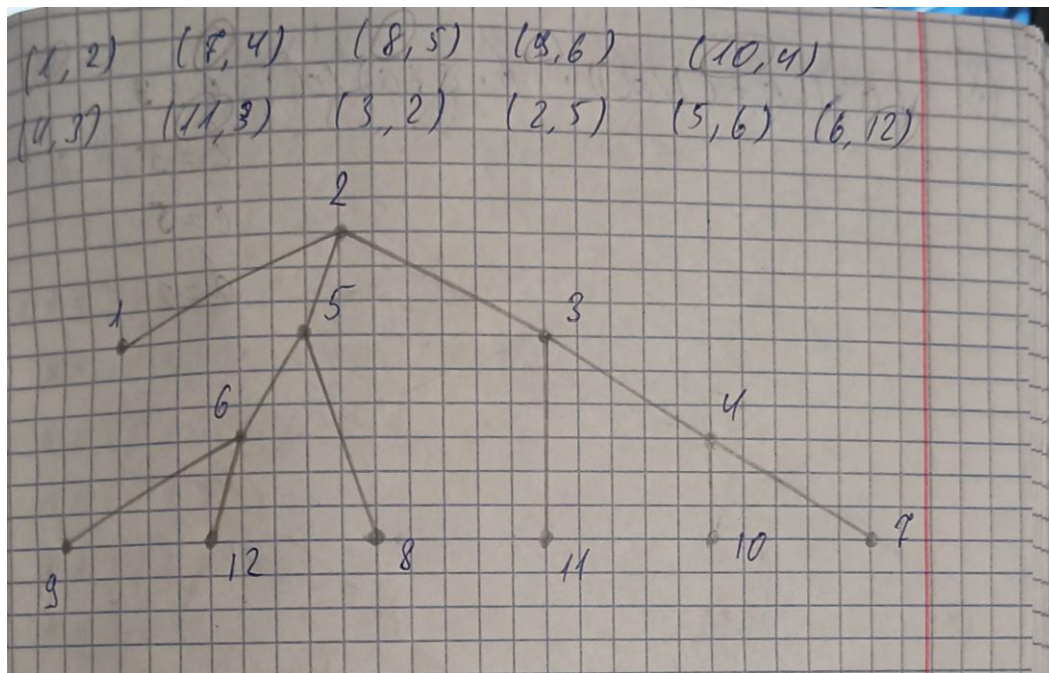 (1,2) (7,4) (8,5) (9,6) (10,4)
(4,3) (11,3) (3,2) (2,5) (5,6) (6,12)
2
1 5 3
6 4
9 12 8 11 10 7